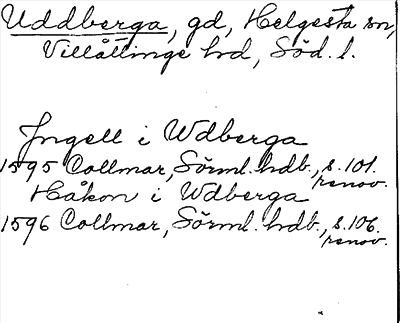 Uddberga, gd, Helgesta sn,
Villåttinge hrd, Söd. l.
Ingell i Wdberga
1595 Collmar, Sörml. hdb., s. 101.
renov.
Håkon i Wdberga
1596 Collmar, Sörml. hdb., s. 106.
renov.